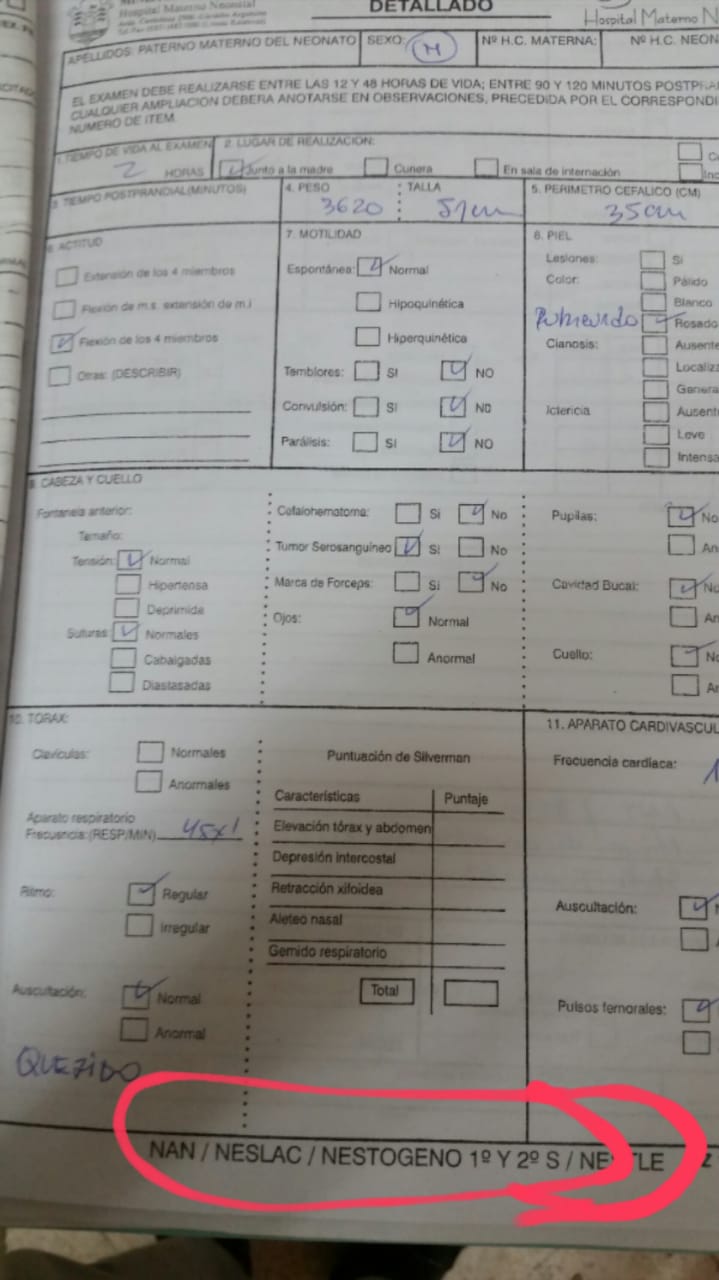 Hospital Materno Neonatal
DETALLADO
Hospital Materno N
APELLIDOS: PATERNO MATERNO DEL NEONATO
SEXO: M
Nº H.C. MATERNA:
Nº H.C. NEON
EL EXAMEN DEBE REALIZARSE ENTRE LAS 12 Y 48 HORAS DE VIDA; ENTRE 90 Y 120 MINUTOS POSTPRA
CUALQUIER AMPLIACION DEBERA ANOTARSE EN OBSERVACIONES, PRECEDIDA POR EL CORRESPONDI
NUMERO DE ITEM.
1. TIEMPO DE VIDA AL EXAMEN
2 HORAS
2. LUGAR DE REALIZACION:
Junto a la madre
Cunera
En sala de internación
3. TIEMPO POSTPRANDIAL (MINUTOS)
4. PESO
3620
TALLA
51cm
5. PERIMETRO CEFALICO (CM)
35cm
6. ACTITUD
Extensión de los 4 miembros
Flexión de m.s. extensión de m.i
Flexión de los 4 miembros
Otras: (DESCRIBIR)
7. MOTILIDAD
Espontánea: Normal
Hipoquinética
Hiperquinética
Temblores: SI NO
Convulsión: SI NO
Parálisis: SI NO
8. PIEL
Lesiones: Si
Color: Pálido
Blanco
Rosado
Cianosis: Ausente
Localiz
Genera
Ictericia Ausent
Leve
Intensa
9. CABEZA Y CUELLO
Fontanela anterior:
Tamaño:
Tensión: Normal
Hipertensa
Deprimida
Suturas: Normales
Cabalgadas
Diastasadas
Cefalohematoma: Si No
Tumor Serosanguineo Si No
Marca de Forceps: Si No
Ojos: Normal
Anormal
Pupilas: No
An
Cavidad Bucal: No
An
Cuello: No
Ar
10. TORAX:
Clavículas: Normales
Anormales
Aparato respiratorio
Frecuencia: (RESP/MIN) 45x'
Ritmo: Regular
Irregular
Auscultación: Normal
Anormal
QUEJIDO
Puntuación de Silverman
Características Puntaje
Elevación tórax y abdomen
Depresión intercostal
Retracción xifoidea
Aleteo nasal
Gemido respiratorio
Total
11. APARATO CARDIVASCUL
Frecuencia cardiaca: 1
Auscultación:
Pulsos femorales:
NAN / NESLAC / NESTOGENO 1º Y 2º S / NESTLE